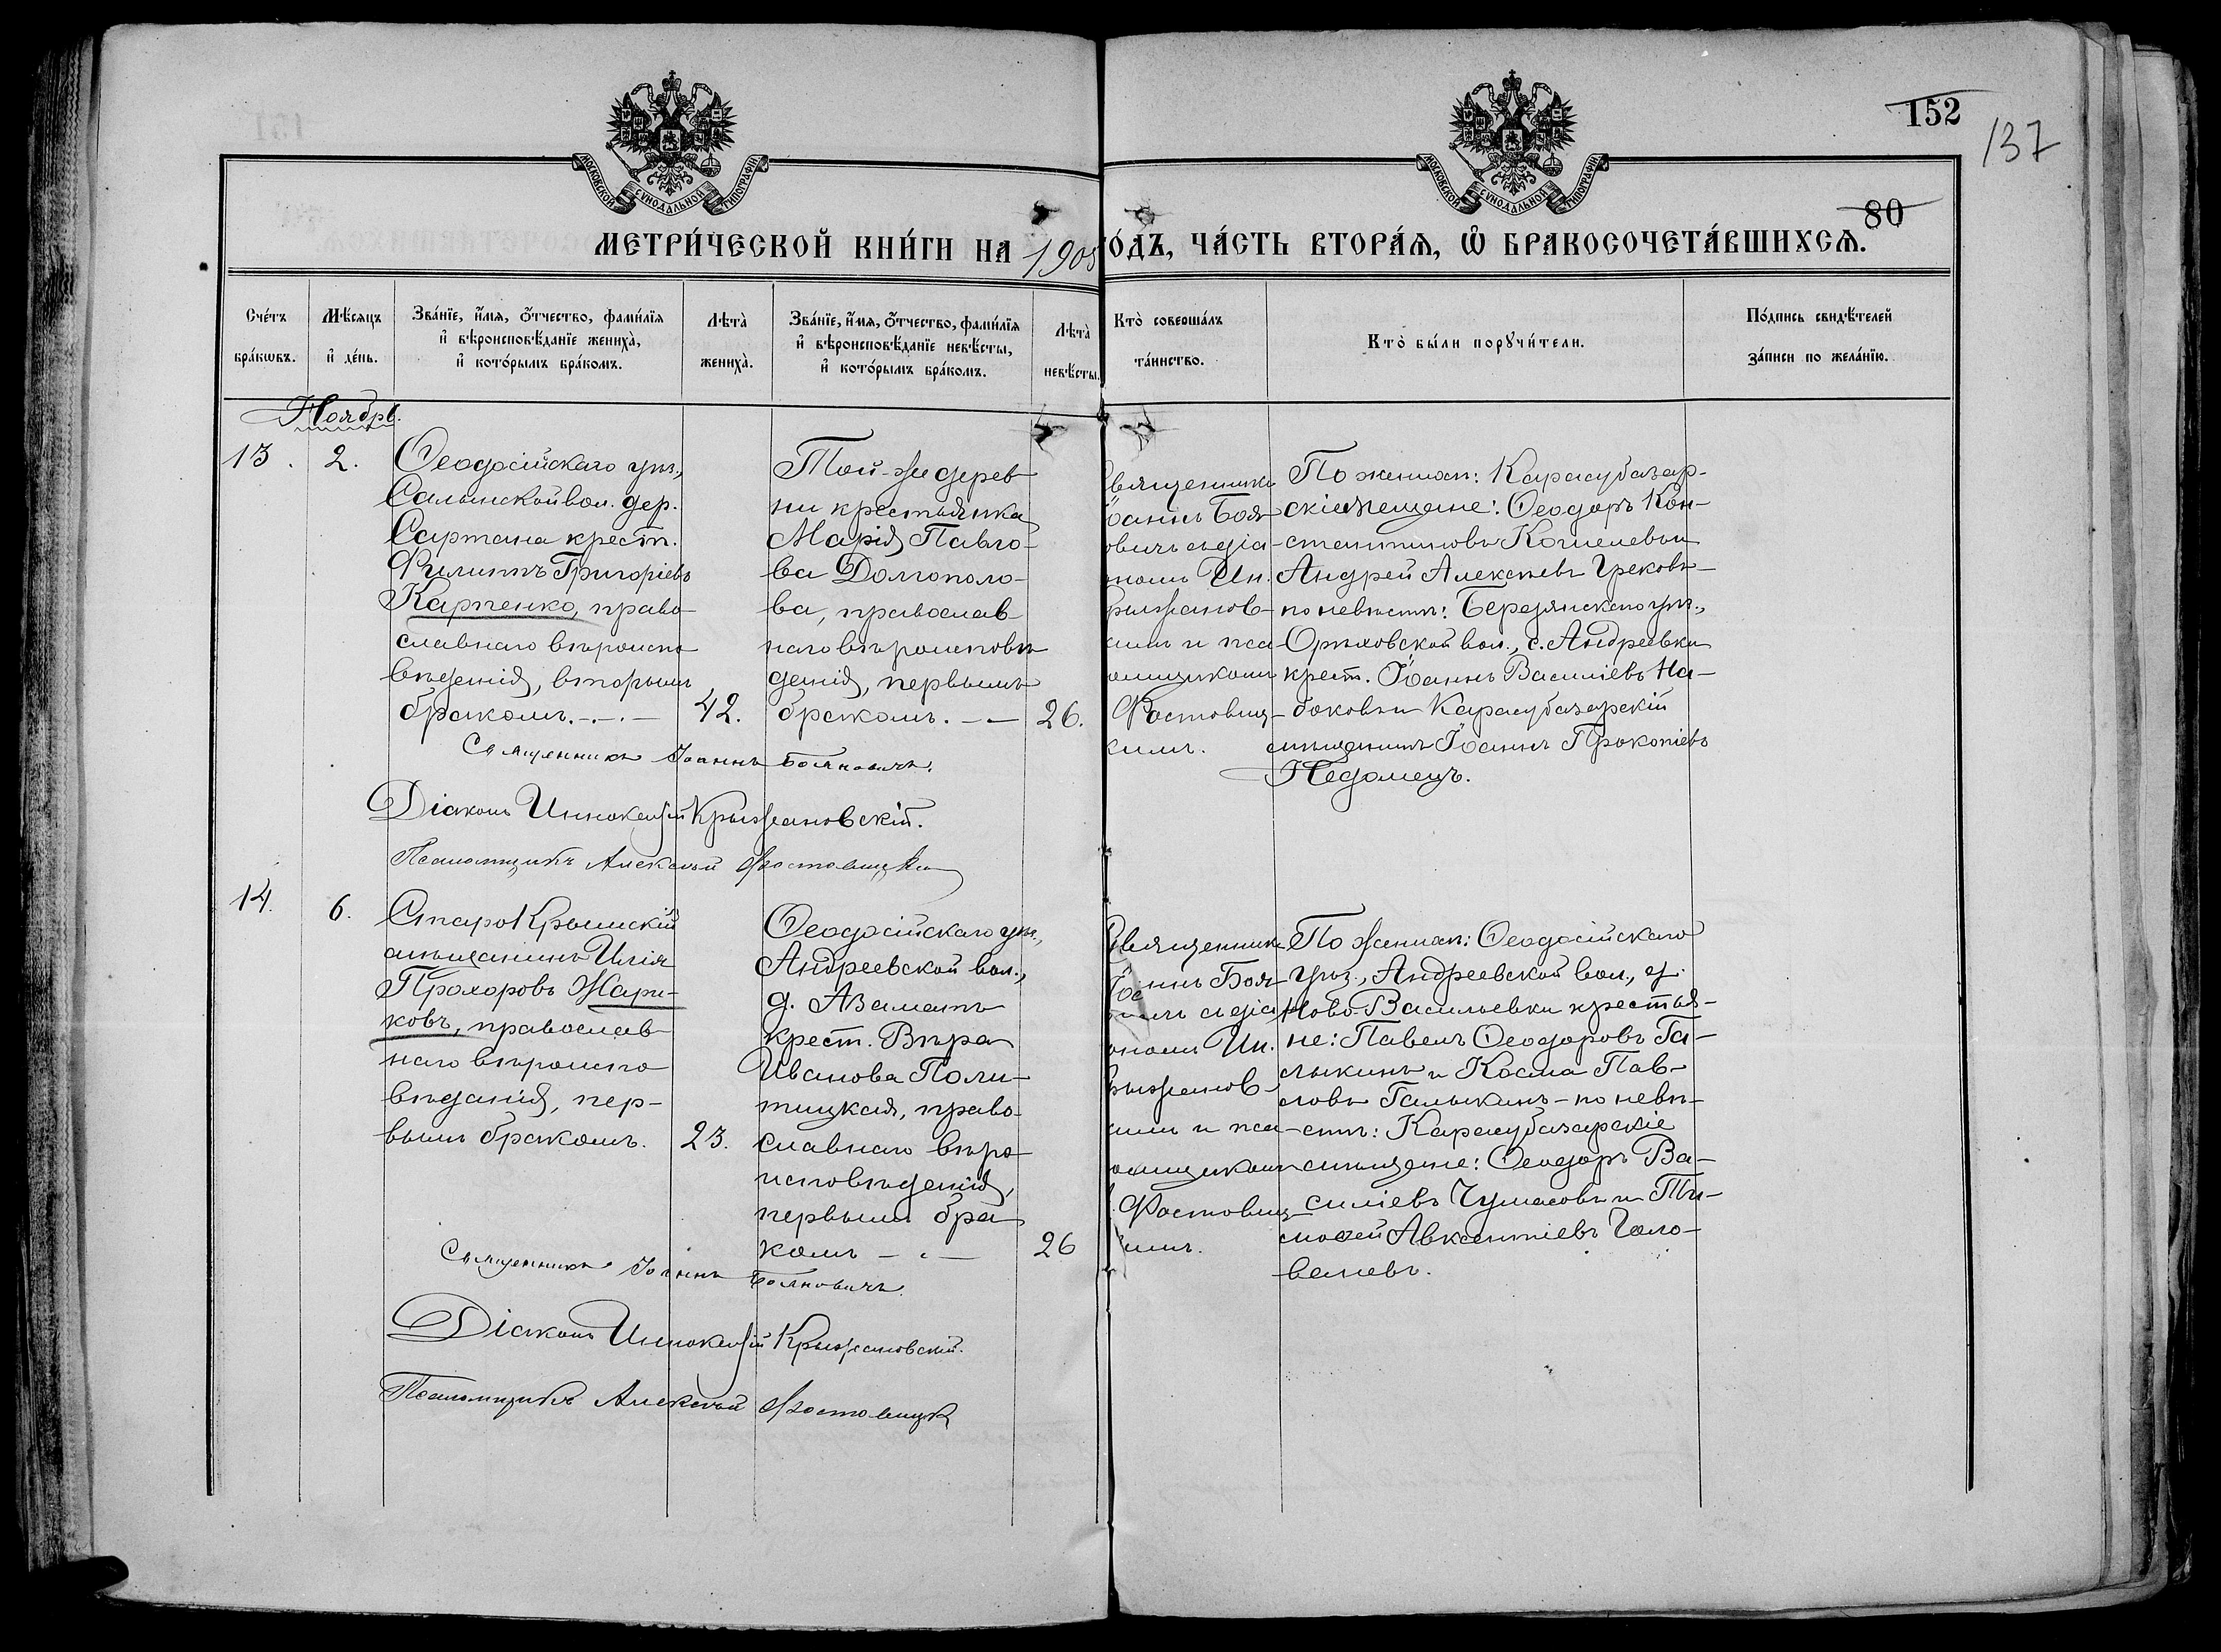 152
137
80
МОСКОВСКОЙ СУНОДАЛЬНОЙ ТИПОГРАФІИ
МОСКОВСКОЙ СУНОДАЛЬНОЙ ТИПОГРАФІИ
МЕТРИ́ЧЕСКОЙ КНИ́ГИ НА 1905
ОДЪ, ЧА́СТЬ ВТОРА́Я, Ѽ БРАКОСОЧЕТА́ВШИХСѦ.
Сче́тъ бра́кѡвъ.
Мѣ́сяцъ и҆ де́нь.
Зва́нїе, и҆́мя, ѻ҆́тчество, фами́лїя и҆ вѣроисповѣ́данїе жениха̀, и҆ кото́рымъ бра́комъ.
Лѣта̀ жениха̀.
Зва́нїе, и҆́мя, ѻ҆́тчество, фами́лїя и҆ вѣроисповѣ́данїе невѣ́сты, и҆ кото́рымъ бра́комъ.
Лѣта̀ невѣ́сты.
Кто̀ соверша́лъ та́инство.
Кто̀ бы́ли порꙋчи́тели.
По́дпись свидѣ́телей за́писи по жела́нїю.
Ноябрь.
13.
2.
Ѳеодосійскаго уѣз.,
Салынской вол. дер.
Сартана крест.
Филиппъ Григоріевъ
Карпенко, право-
славнаго вѣроиспо-
вѣденія, вторымъ
бракомъ.
42.
Той-же дерев
ни крестьянка
Марія Павло-
ва Долгополо-
ва, православ-
наго вѣроисповѣ
денія, первымъ
бракомъ.
26.
Священникъ
Іоаннъ Боя-
овичъ съ діа-
ономъ Ин.
рыжанов-
кимъ и пса-
омщикомъ
Фостовиц-
кимъ.
По женихѣ: Карасубазар-
скіе мещане: Ѳеодоръ Кон-
стантиновъ Кошелевъ и
Андрей Алексѣевъ Грековъ-
по невѣстѣ: Бердянскаго уѣз.,
Орѣховской вол., с. Андреевки
крест. Іоаннъ Василіевъ На-
боковъ и Карасубазарскій
мѣщанинъ Іоаннъ Прокопіевъ
Недомецъ.
Священникъ Іоаннъ Бояновичъ.
Діаконъ Иннокентій Крыжановскій.
Псаломщикъ Алексѣй Фостовицкій
14.
6.
Старокрымскій
мѣщанинъ Илія
Прохоровъ Жари-
ковъ, православ-
наго вѣроиспо-
вѣданія, пер-
вымъ бракомъ.
23.
Ѳеодосійскаго уѣз.,
Андреевской вол.,
д. Азаматъ
крест. Вѣра
Иванова Поли-
тицкая, право-
славнаго вѣро-
исповѣденія,
первымъ бра
комъ
26
Священникъ
Іоаннъ Боя-
вичъ съ діа-
ономъ Ин.
рыжанов-
кимъ и пса-
омщикомъ
Фостовиц-
кимъ.
По женихѣ: Ѳеодосійскаго
уѣз., Андреевской вол., д.
Ново-Васильевки крестья-
не: Павелъ Ѳеодоровъ Га-
лыкинъ и Косма Пав-
ловъ Галыкинъ - по невѣ-
стѣ: Карасубазарскіе
мѣщане: Ѳеодоръ Ва-
силіевъ Чумасовъ и Ти-
моѳей Авксентіевъ Голо-
вачевъ.
Священникъ Іоаннъ Бояновичъ.
Діаконъ Иннокентій Крыжановскій.
Псаломщикъ Алексѣй Фостовицк